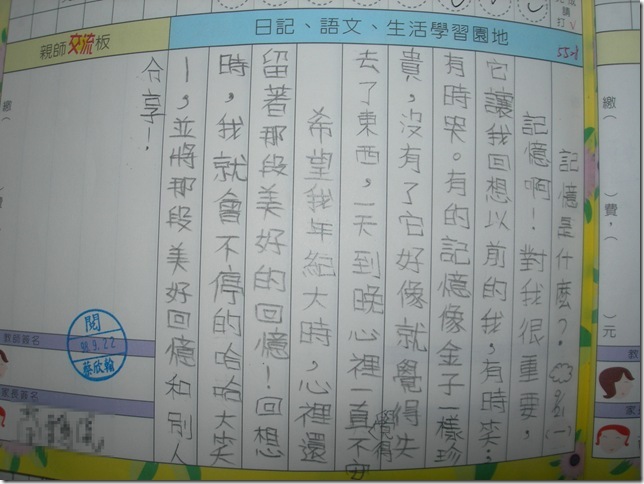 日記、語文、生活學習園地
記憶是什麼?
9/21(一)
記憶啊!對我很重要,
它讓我回想以前的我,有時笑;
有時哭。有的記憶像金子一樣珍
貴,沒有了它好像就覺得失
去了東西,一天到晚心裡一直覺得不安
希望我年紀大時,心裡還
留著那段美好的回憶!回想
時,我就會不停的哈哈大笑
!,並將那段美好回憶和別人
分享!.
親師交流板
教師簽名
閱
98.9.22
蔡欣翰
家長簽名
繳(
)費,(
)元
教
家